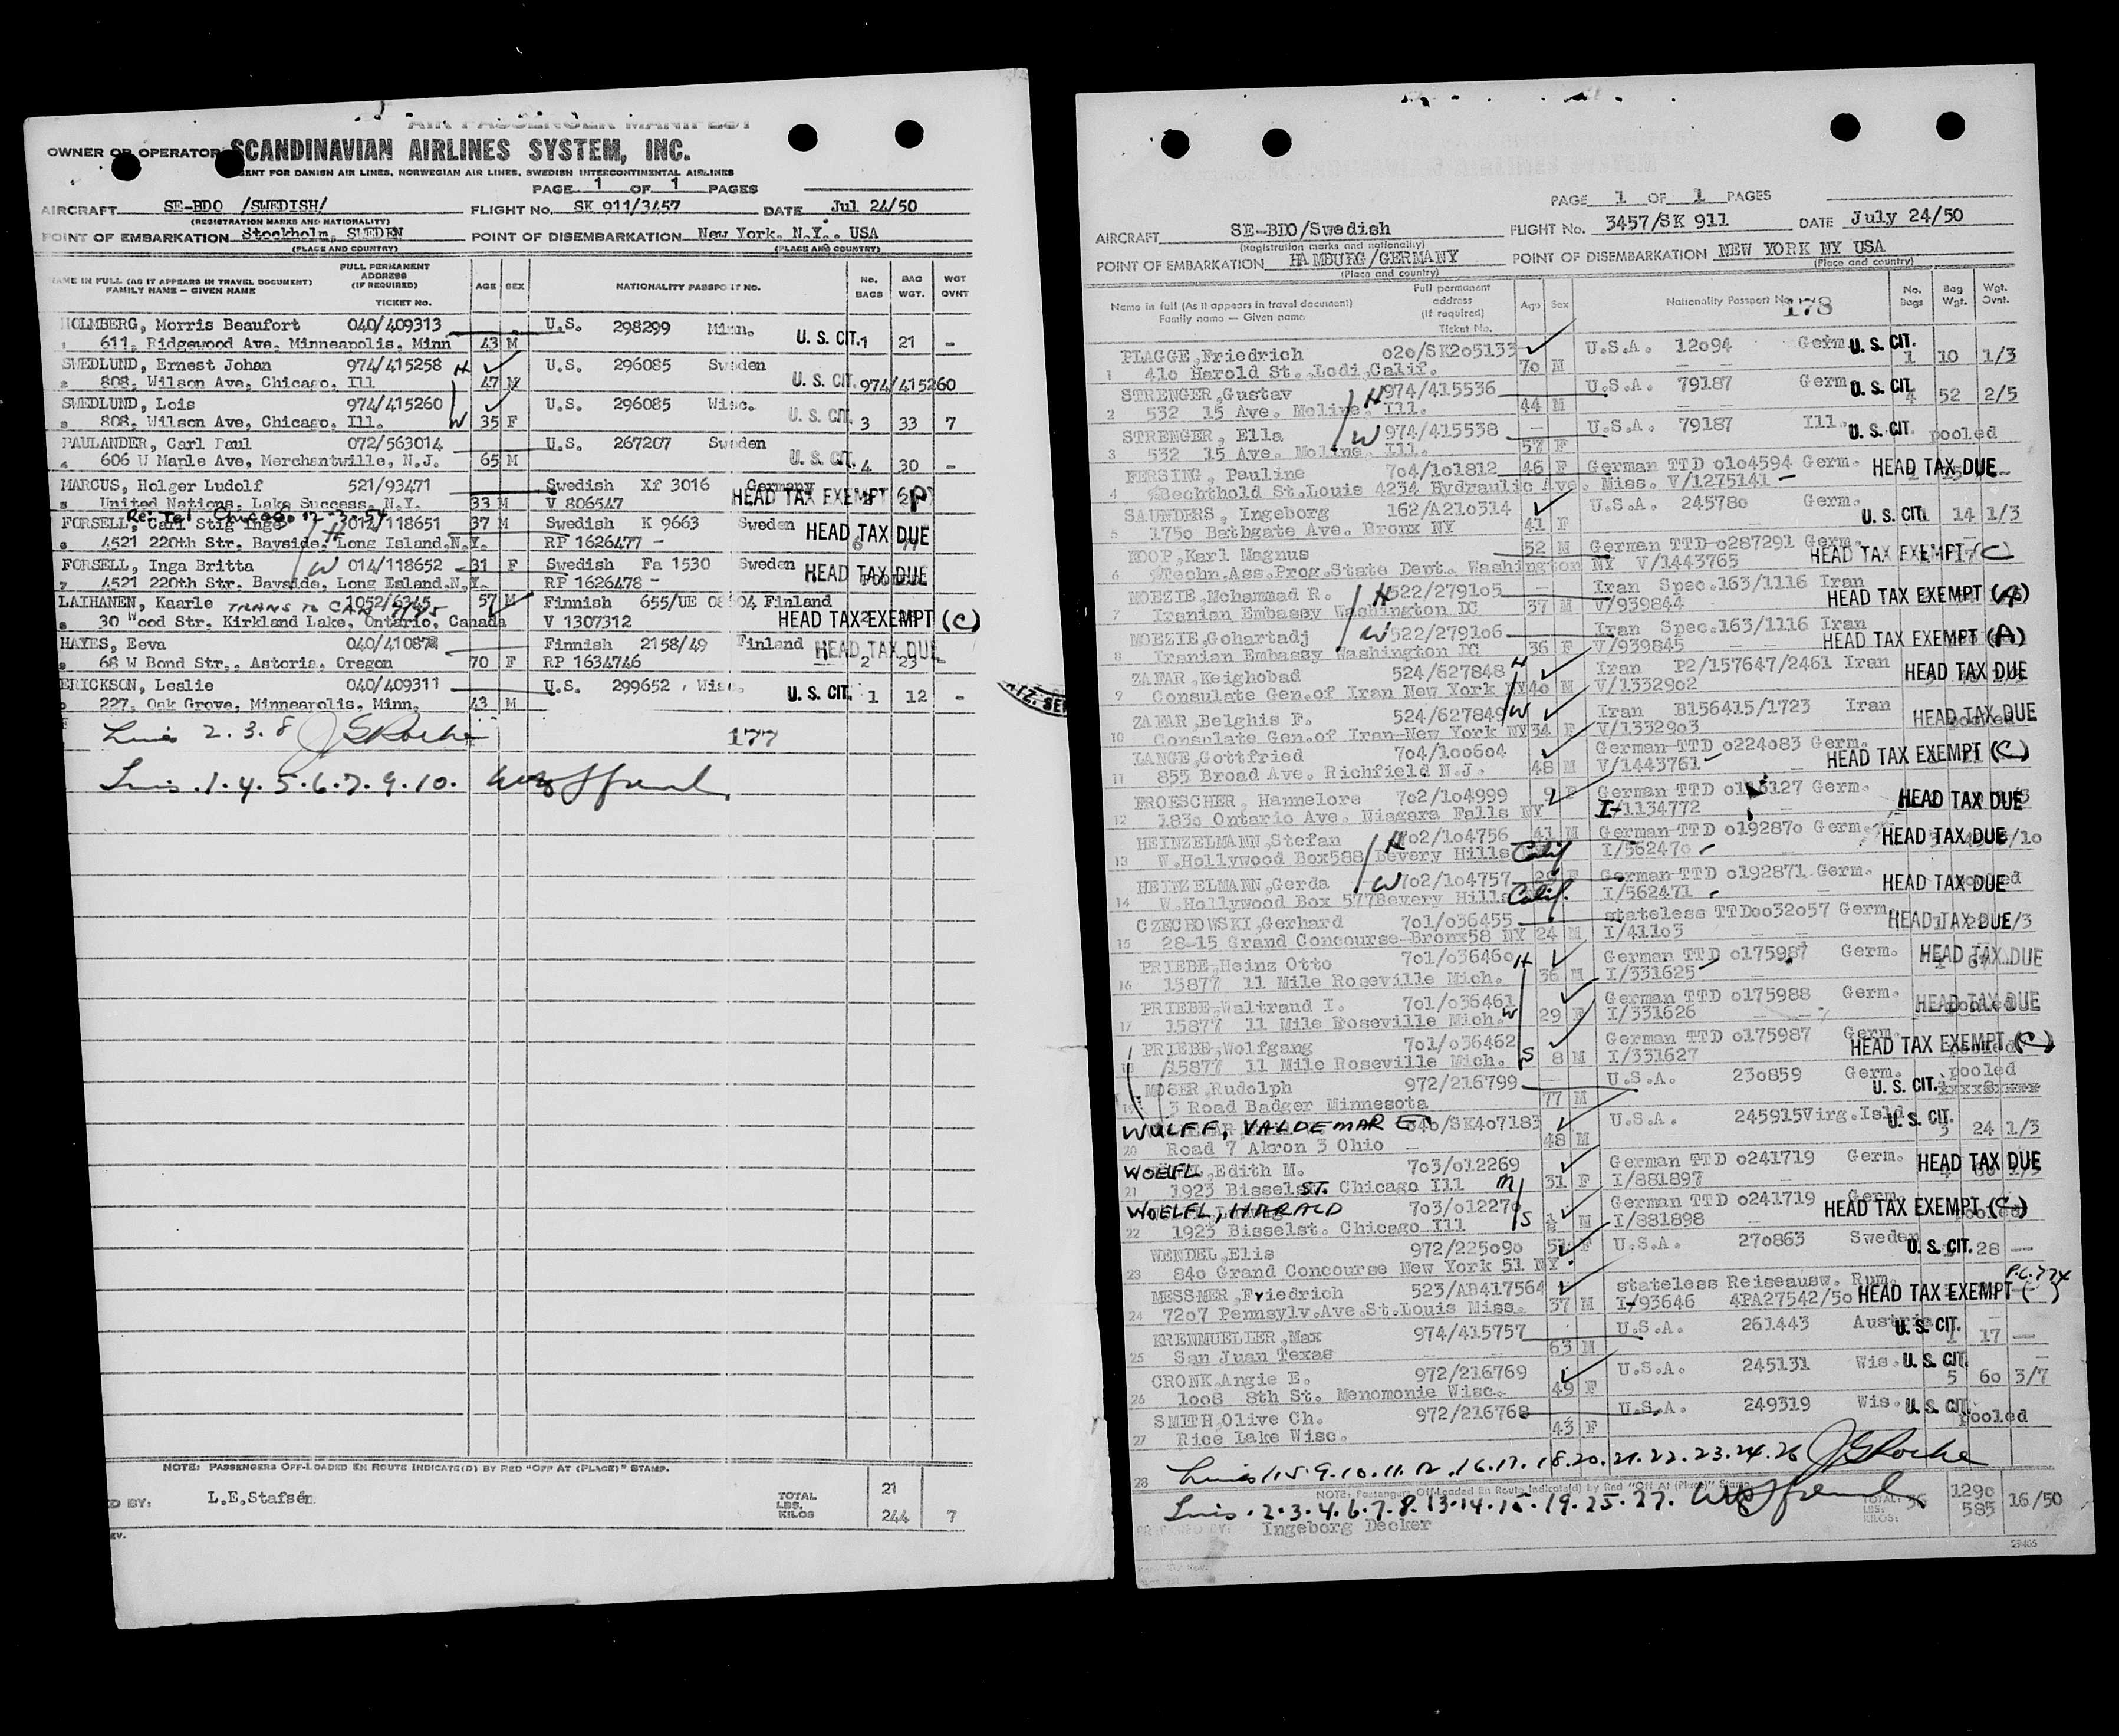 AIR PASSENGER MANIFEST
OWNER OR OPERATOR SCANDINAVIAN AIRLINES SYSTEM, INC.
AGENT FOR DANISH AIR LINES, NORWEGIAN AIR LINES, SWEDISH INTERCONTINENTAL AIRLINES
PAGE 1 OF 1 PAGES
AIRCRAFT SE-BDO /SWEDISH/ FLIGHT No. SK 911/3457 DATE Jul 24/50
(REGISTRATION MARKS AND NATIONALITY)
POINT OF EMBARKATION Stockholm, SWEDEN POINT OF DISEMBARKATION New York, N.Y., USA
(PLACE AND COUNTRY) (PLACE AND COUNTRY)
NAME IN FULL (AS IT APPEARS IN TRAVEL DOCUMENT) FAMILY NAME – GIVEN NAME FULL PERMANENT ADDRESS (IF REQUIRED) TICKET No. AGE SEX NATIONALITY PASSPORT No. No. BAGS BAG WGT. WGT OVNT
HOLMBERG, Morris Beaufort 040/409313 U.S. 298299 Minn.
611, Ridgewood Ave, Minneapolis, Minn 43 M U. S. CIT. 1 21 -
SWEDLUND, Ernest Johan 974/415258 H U.S. 296085 Sweden
808, Wilson Ave, Chicago, Ill 47 M U. S. CIT. 974/415260
SWEDLUND, Lois 974/415260 U.S. 296085 Wisc.
808, Wilson Ave, Chicago, Ill. W 35 F U. S. CIT. 3 33 7
PAULANDER, Carl Paul 072/563014 U.S. 267207 Sweden
606 W Maple Ave, Merchantville, N.J. 65 M U. S. CIT. 4 30 -
MARCUS, Holger Ludolf 521/93471 Swedish Xf 3016 Germany
United Nations, Lake Success, N.Y. 33 M V 806547 HEAD TAX EXEMPT
FORSELL, Carl Stig Inge 014/118651 37 M Swedish K 9663 Sweden HEAD TAX DUE
4521 220th Str, Bayside, Long Island, N.Y. H RP 1626477 -
FORSELL, Inga Britta W 014/118652 31 F Swedish Fa 1530 Sweden HEAD TAX DUE
4521 220th Str, Bayside, Long Esland, N.Y. RP 1626478 -
LAIHANEN, Kaarle TRANS TO CAN 1052/6345 57 M Finnish 655/UE Finland
30 Wood Str, Kirkland Lake, Ontario, Canada V 1307312 HEAD TAX EXEMPT (C)
HAYES, Eeva Finnish 2158/49 Finland HEAD TAX DUE
68 W Bond Str., Astoria, Oregon 70 F RP 1634746 2 23 -
ERICKSON, Leslie 040/409311 U.S. 299652 Wisc.
227, Oak Grove, Minneapolis, Minn. 43 M U. S. CIT. 1 12 -
2. 3. 8 JGRoche
177
1. 4. 5. 6. 7. 9. 10.
NOTE: PASSENGERS OFF-LOADED EN ROUTE INDICATE(D) BY RED "OFF AT (PLACE)" STAMP.
L.E.Stafsén
TOTAL LBS. KILOS 21 244 7
PAGE 1 OF 1 PAGES
AIRCRAFT SE-BDO/Swedish FLIGHT No. 3457/SK 911 DATE July 24/50
(Registration marks and nationality)
POINT OF EMBARKATION HAMBURG/GERMANY POINT OF DISEMBARKATION NEW YORK NY USA
(Place and country) (Place and country)
Name in full (As it appears in travel document) Family name — Given name Full permanent address (If required) Ticket No. Age Sex Nationality Passport No. 178 No. Bags Bag Wgt. Wgt. Ovnt.
PLAGGE, Friedrich 020/SK205133 U.S.A. 12094 Germ. U. S. CIT.
1 410 Harold St. Lodi, Calif. 70 M 1 10 1/3
STRENGER, Gustav H 974/415536 U.S.A. 79187 Germ U. S. CIT.
2 532 15 Ave. Moline, Ill. 44 M 4 52 2/5
STRENGER, Ella W 974/415538 U.S.A. 79187 Ill. U. S. CIT. pooled
3 532 15 Ave. Moline, Ill. 57 F
FERSING, Pauline 704/101812 46 F German TTD 0104594 Germ. HEAD TAX DUE
4 %Bechthold St.Louis 4234 Hydraulic Ave. Miss. V/1275141
SAUNDERS, Ingeborg 162/A210314 U.S.A. 245780 Germ.
5 1750 Bathgate Ave. Bronx NY 41 F U. S. CIT. 14 1/3
KOOP, Karl Magnus 52 M German TTD 0287291 Germ. HEAD TAX EXEMPT (C)
6 %Techn.Ass.Prog.State Dept. Washington NY V/1443765
MOEZIE, Mohammad R. H 522/279105 Iran Spec.163/1116 Iran
7 Iranian Embassy Washington DC 37 M V/939844 HEAD TAX EXEMPT (A)
MOEZIE, Gohartadj W 522/279106 Iran Spec.163/1116 Iran
8 Iranian Embassy Washington DC 36 F V/939845 HEAD TAX EXEMPT (A)
ZAFAR, Keighobad 524/627848 H Iran P2/157647/2461 Iran HEAD TAX DUE
9 Consulate Gen.of Iran New York NY 40 M V/1332902
ZAFAR, Belghis F. 524/627849 W Iran B156415/1723 Iran HEAD TAX DUE
10 Consulate Gen.of Iran New York NY 34 F V/1332903
LANGE, Gottfried 704/100604 German TTD 0224083 Germ.
11 855 Broad Ave. Richfield N.J. 48 M V/1443761 HEAD TAX EXEMPT (C)
FROESCHER, Hannelore 702/104999 9 F German TTD Germ. HEAD TAX DUE
12 1830 Ontario Ave. Niagara Falls NY I-/1134772
HEINZELMANN, Stefan H 702/104756 41 M German TTD 0192870 Germ. HEAD TAX DUE
13 W.Hollywood Box588 Bevery Hills Calif I/562470
HEINZELMANN, Gerda W 702/104757 German TTD 0192871 Germ. HEAD TAX DUE
14 W.Hollywood Box 577Bevery Hills Calif. I/562471
CZECHOWSKI, Gerhard 701/036455 stateless TTD0032057 Germ. HEAD TAX DUE
15 28-15 Grand Concourse Bronx58 NY 24 M I/41103
PRIEBE, Heinz Otto 701/036460 H German TTD 0175987 Germ. HEAD TAX DUE
16 15877 11 Mile Roseville Mich. 36 M I/331625
PRIEBE, Waltraud I. 701/036461 German TTD 0175988 Germ. HEAD TAX DUE
17 15877 11 Mile Roseville Mich. W 29 F I/331626
PRIEBE, Wolfgang 701/036462 German TTD 0175987 Germ. HEAD TAX EXEMPT (C)
18 15877 11 Mile Roseville Mich. S 8 M I/331627
MOSER, Rudolph 972/216799 U.S.A. 230859 Germ. pooled
19 3 Road Badger Minnesota 77 M U. S. CIT.
WULFF, VALDEMAR E. 040/SK407183 U.S.A. 245915 Virg.Isld U. S. CIT.
20 Road 7 Akron 3 Ohio 48 M 3 24 1/3
WOELFL, Edith M. 703/012269 German TTD 0241719 Germ. HEAD TAX DUE
21 1923 Bissel ST. Chicago Ill M 31 F I/881897
WOELFL, HARALD 703/012270 German TTD 0241719 Germ. HEAD TAX EXEMPT (C)
22 1923 Bisselst. Chicago Ill S M I/881898
WENDEL, Elis 972/225090 F U.S.A. 270863 Sweden U. S. CIT. 28 —
23 840 Grand Concourse New York 51 NY.
MESSMER, Friedrich 523/AB417564 stateless Reiseausw. Rum. P.L. 774
24 7207 Pennsylv.Ave.St.Louis Miss. 37 M I-/93646 4PA27542/50 HEAD TAX EXEMPT ( )
KRENMUELLER, Max 974/415757 U.S.A. 261443 Austria U. S. CIT.
25 San Juan Texas 63 M 1 17 —
CRONK, Angie E. 972/216769 U.S.A. 245131 Wis. U. S. CIT.
26 1008 8th St. Menomonie Wisc. 49 F 5 60 3/7
SMITH, Olive Ch. 972/216768 U.S.A. 249319 Wis. U. S. CIT. pooled
27 Rice Lake Wisc. 43 F
28 1. 5. 9. 10. 11. 12. 16. 17. 18. 20. 21. 22. 23. 24. 26 JGRoche
NOTE: Passengers Off-Loaded En Route Indicate(d) by Red "Off At (Place)" Stamp
2. 3. 4. 6. 7. 8. 13. 14. 15. 19. 25. 27.
TOTAL: 36 LBS. KILOS: 1290 585 16/50
PREPARED BY: Ingeborg Decker
29405